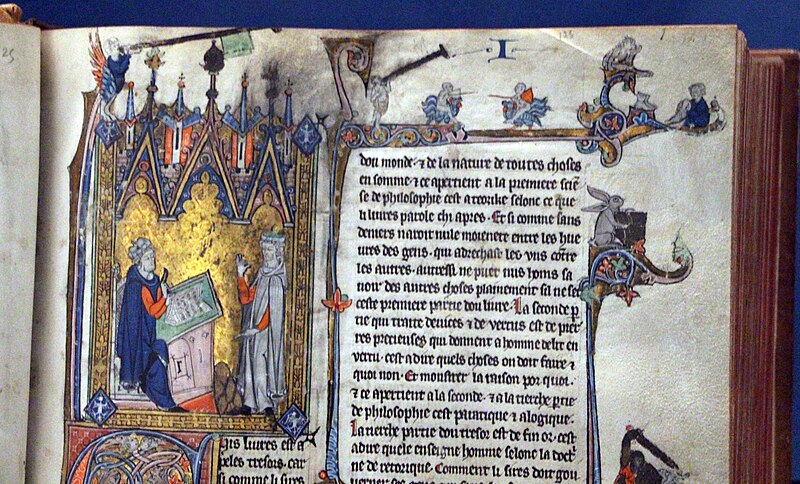 I
his liures est a
peles tresors. car
si comme li sires
dou monde. & de la nature de toutes choses
en somme. & ce apertient a la premiere scien
se de philosophie cest a teorike selonc ce que
li liures parole chi apres. Et si comme sans
deniers naroit nule moienete entre les hue
ures des gens. qui adrechast les vns cōtre
les autres. autressi ne puet nus homs sa
uoir des autres choses plainement sil ne set
ceste premiere partie dou liure. La seconde p
tie qui traite deuices & de vertus est de pier
res precieuses qui donnent a homme delit en
vertu. cest a dire quels choses on doit faire &
quoi non. Et monstret la raison por quoi.
& ce apertient a la seconde. & a la tierche ptie
de philosophie cest pratatique & a logique.
La tierche partie dou tresor est de fin or. cest
a dire quele enseigne homme selonc la doct
ne de retorique. Comment li sires doit gou
uerner ses gens